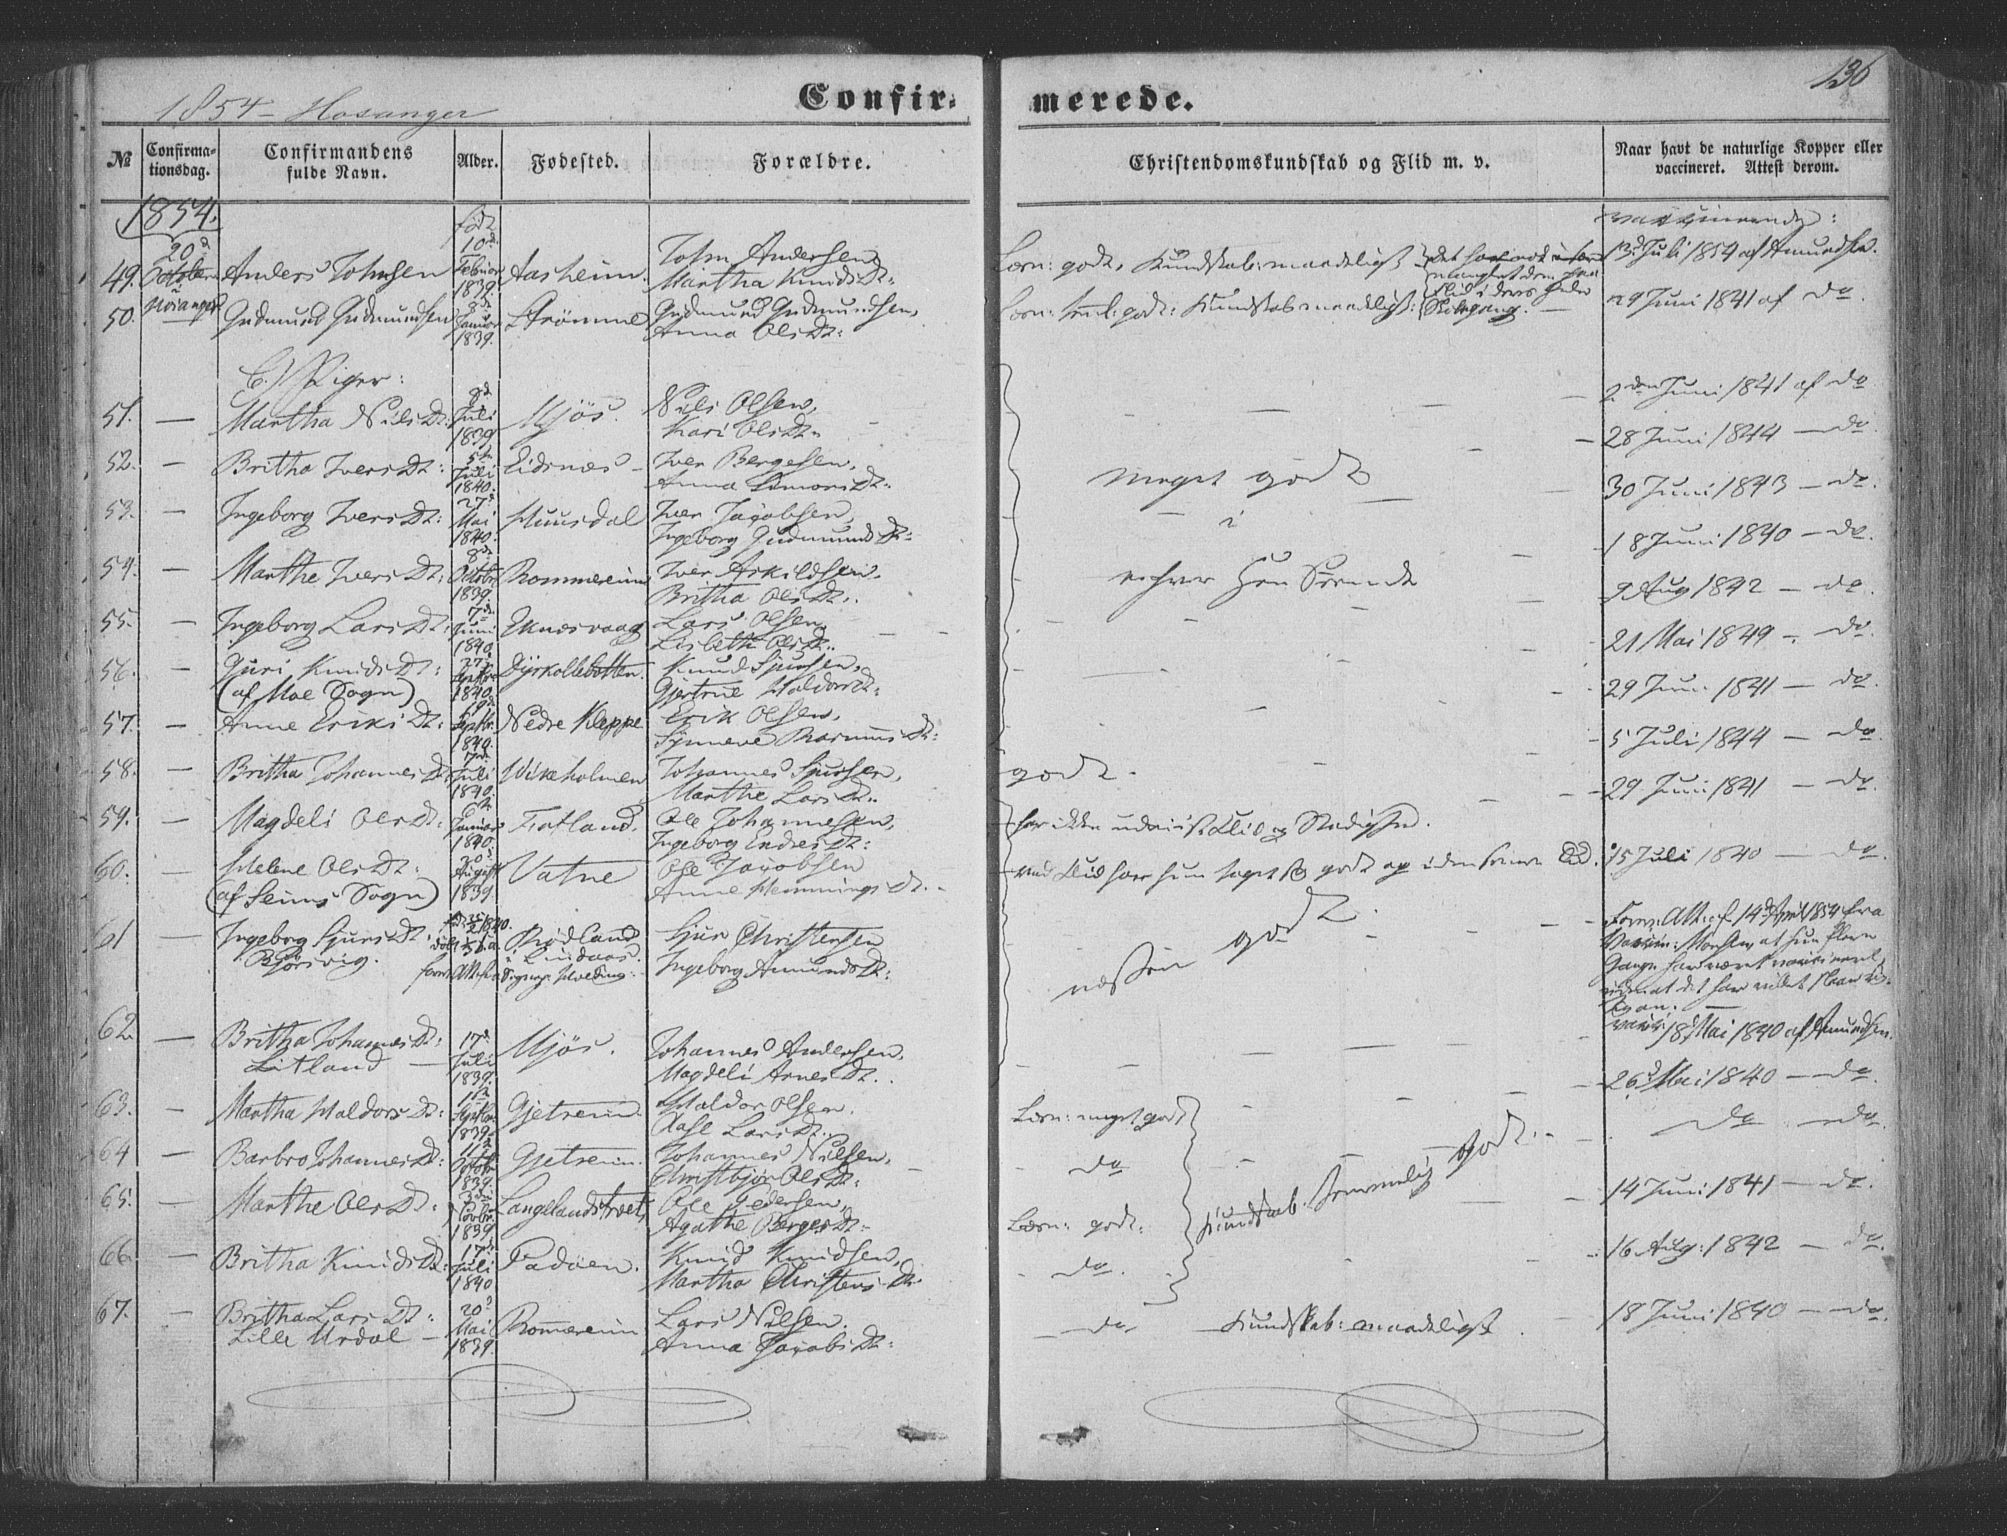 1854 – Hosanger
Confir-
merede.
136
№
Confirma-
tionsdag.
Confirmandens
fulde Navn.
Alder.
Fødested.
Forældre.
Christendomskundskab og Flid m. v.
Naar havt de naturlige Kopper eller
vaccineret. Attest derom.
1854.
født
49. 20d October Anders Johnsen 10d Februar 1839 Aasheim. John Andersen, Martha Knuds Dt: Læsn: godt, Kundskab: maadeligt 13d Juli 1854 af Amundsen.
50. Hosanger Gudmund Gudmundsen Januar 1839. Strømme Gudmund Gudmundsen, Anna Ols Dt: Læsn: godt: Kundskab maadeligt: Skolegang. 29 Juni 1841 af do.
C.) Piger:
51. — Martha Nils Dt. 8d Juli 1839 Mjøs. Nils Olsen, Kari Ols Dt. 2den Juni 1841 af do
52. — Britha Ivers Dt: 5te Juli 1840. Eidsnæs – Iver Bergesen, Anna Simons Dt. meget godt 28 Juni 1844 — do.
53. — Ingeborg Ivers Dt: 27d Mai 1840. Huusdal Iver Jacobsen, Ingeborg Gudmunds Dt. 30 Juni 1843 — do.
54. — Marthe Ivers Dt: 8de Octobr. 1839. Rommereim Iver Askildsen. Britha Ols Dt. 18 Juni 1840 — do.
55. — Ingeborg Lars Dt: 7de Juni 1840. Eknæsvaag Lars Olsen, Lisbeth Ols Dt. 9 Aug 1842 — do.
56. — Guri Knuds Dt: (af Moe Sogn) 1840. Dyrkollebotten. Knud Sjursen, Gjertrue Haldors Dt: 21 Mai 1849 – do.
57. — Anne Eriks Dt: 19d Septbr. 1840. Nedre Kleppe Erik Olsen, Synneve Rasmus Dt: 29 Juni 1841 — do.
58. — Britha Johannes Dt. 17d Juli 1840. Wikeholmen Johannes Sjursen, Marthe Lars Dt. godt. 5 Juli 1844 — do.
59. — Magdeli Ols Dt: 6te Januar 1840. Fatland. Ole Johannesen, Ingeborg Endres Dt: har ikke udviist Flid og Stadighed. 29 Juni 1841 — do
60. — Helene Ols Dt: (af Seims Sogn) 20d August 1839. Vatne Ole Jacobsen Anne Hemnings Dt. ved Flid har hun taget godt op i den senere Tid. 15 Juli 1840 — do.
61 — Ingeborg Sjurs Dt. Bjørsvig. Rødland i Lindaas Sogn Sjur Christensen Ingeborg Amunds Dt: næsten godt. Forev: Att: af 14d April 1854 fra at hun flere Gange har været vaccineret, uden at det har villet slaae
62 — Britha Johannes Dt: Litland — 17d Juli 1839. Mjøs. Johannes Andersen, Magdeli Arnes Dt. vacc: 18d Mai 1840 af Amundsen.
63. — Martha Haldors Dt: Septbr. 1839. Gjetreim. Haldor Olsen. Aase Lars Dt. Læsn: meget godt 26d Mai 1840 — do.
64 — Barbro Johannes Dt: 11te Octobr. 1839. Gjetreim. Johannes Nilsen, Christbjør Ols Dt: do Kundskab: temmelig godt. do do.
65. — Marthe Ols Dt: 3de Novbr. 1839 Langelandstræet, Ole Pedersen, Agathe Berges Dt. Læsn: godt: 14 Juni 1841 — do.
66. — Britha Knuds Dt: 17d Juli 1840 Fadøen. Knud Knudsen, Martha Christens Dt. do. 16 Aug: 1842 — do.
67. — Britha Lars Dt: Lille Urdal — 20d Mai 1839. Romereim Lars Nilsen. Anna Jacobs Dt: do. Kundskab: maadeligt. 18 Juni 1840 — do.